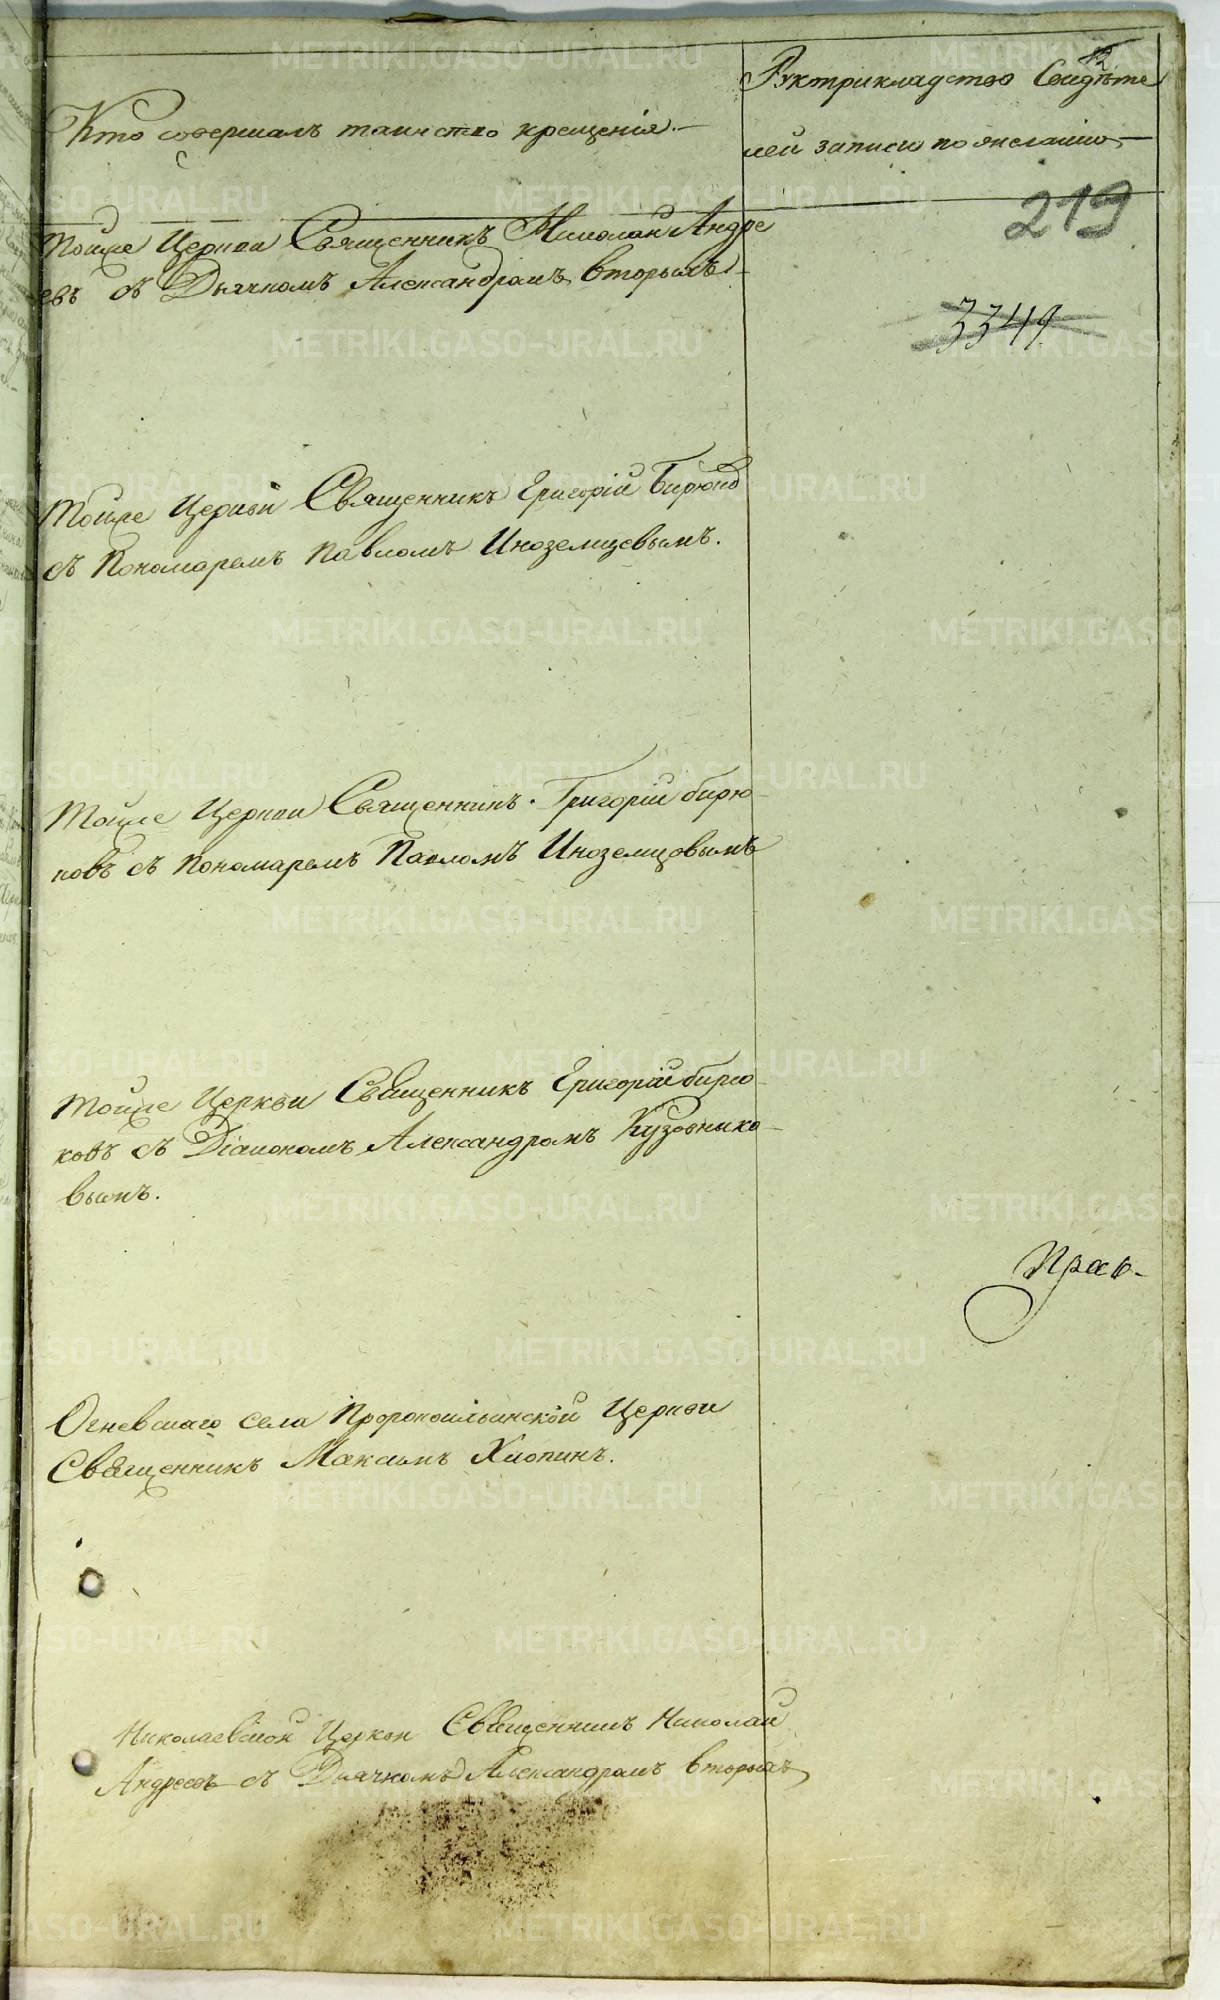 12.
Кто совершалъ таинство крещенія.
Рукприкладство Свидѣте
лей записи по желанію
219
3349
Тойже Церкви Священникъ Николай Андре
евъ съ Дьячкомъ Александромъ Вторымъ
Тойже Церкви Священникъ Григорій Бирюков
съ Пономаремъ Павломъ Иноземцевымъ.
Тойже Церкви Священникъ Григорій бирю
ковъ съ Пономаремъ Павломъ Иноземцовымъ
Тойже Церкви Священникъ Григорій бирю
ковъ съ Діакономъ Александромъ Кузовнико
вымъ.
Прав-
Огневскаго села Пророкоильинской Церкви
Священникъ Максимъ Хлопинъ.
Николаевской Церкви Священникъ Николай
Андреевъ съ Дьячкомъ Александромъ Вторымъ
METRIKI.GASO-URAL.RU